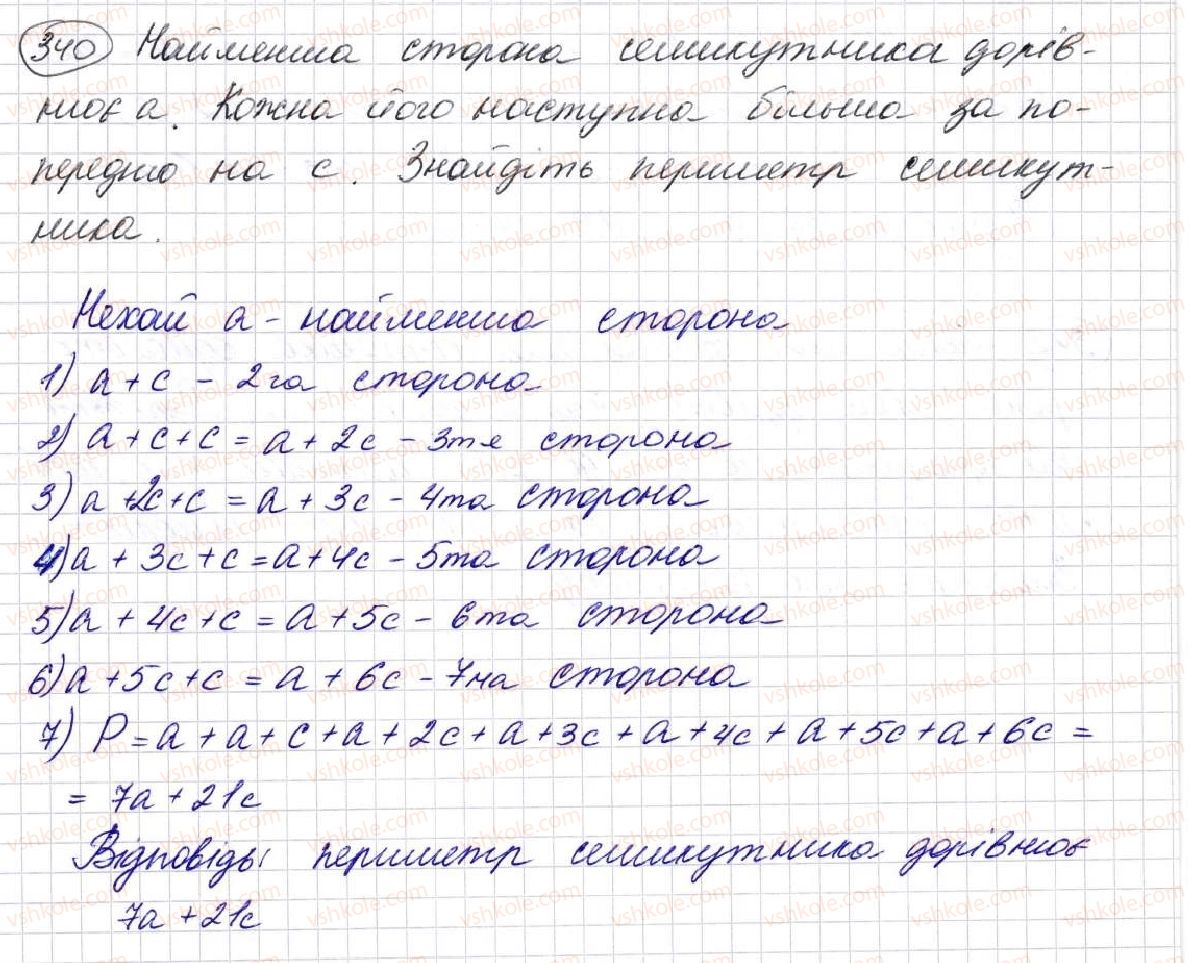 340 Найменша сторона семикутника дорів-
нює a. Кожна його наступна більша за по-
передню на c. Знайдіть периметр семикут-
ника.
Нехай a - найменша сторона
1) a + c - 2га сторона
2) a + c + c = a + 2c - 3тя сторона
3) a + 2c + c = a + 3c - 4та сторона
4) a + 3c + c = a + 4c - 5та сторона
5) a + 4c + c = a + 5c - 6та сторона
6) a + 5c + c = a + 6c - 7ма сторона
7) P = a + a + c + a + 2c + a + 3c + a + 4c + a + 5c + a + 6c =
= 7a + 21c
Відповідь: периметр семикутника дорівнює
7a + 21c
vshkole.com